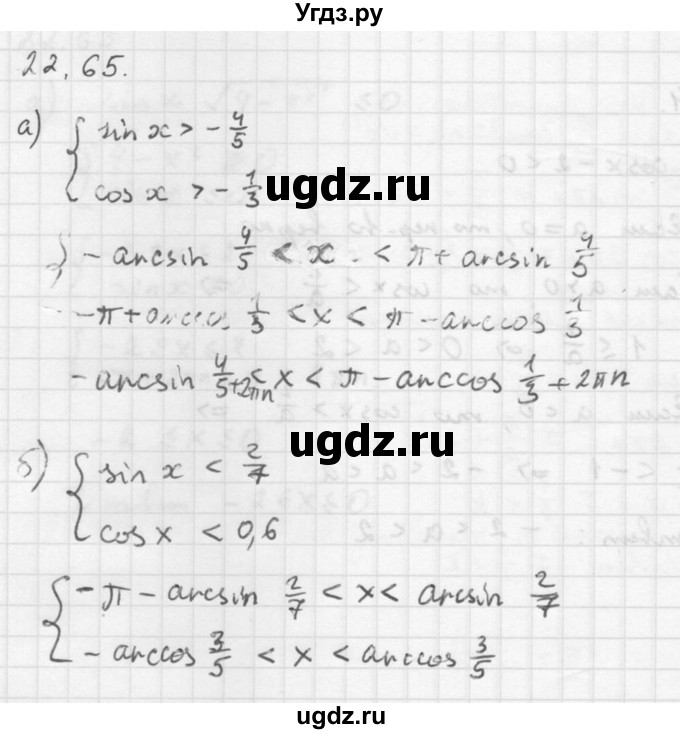 Угдз.ру
22.65.
а) { sin x > - 4/5
cos x > - 1/3
ugdz.ru
- arcsin 4/5 < x < π + arcsin 4/5
-π + arccos 1/3 < x < π - arccos 1/3
- arcsin 4/5 + 2πn < x < π - arccos 1/3 + 2πn
ugdz.ru
б) { sin x < 2/7
cos x < 0,6
{ -π - arcsin 2/7 < x < arcsin 2/7
- arccos 3/5 < x < arccos 3/5
ugdz.ru